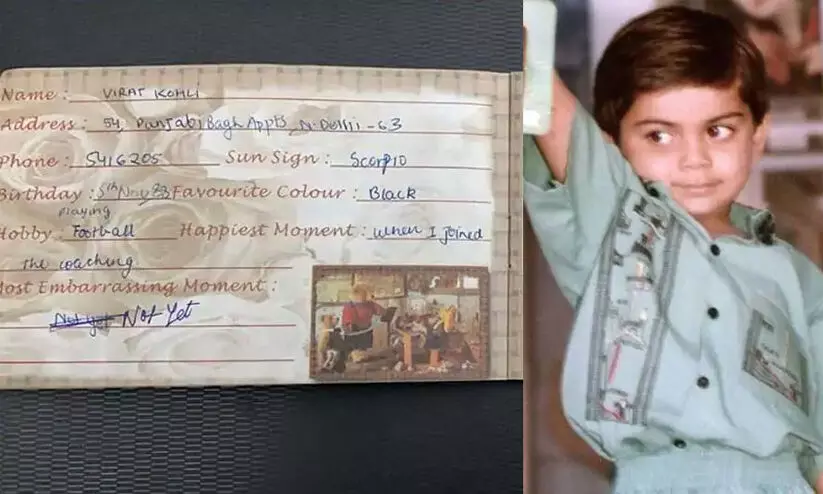 Name : VIRAT KOHLI
Address : 54, Punjabi Bagh Appts, N. Delhi - 63
Phone : 5416205 Sun Sign : Scorpio
Birthday : 5th Nov, 88 Favourite Colour : Black
playing
Hobby : Football Happiest Moment : when I joined
the coaching
Most Embarrassing Moment :
Not yet Not Yet